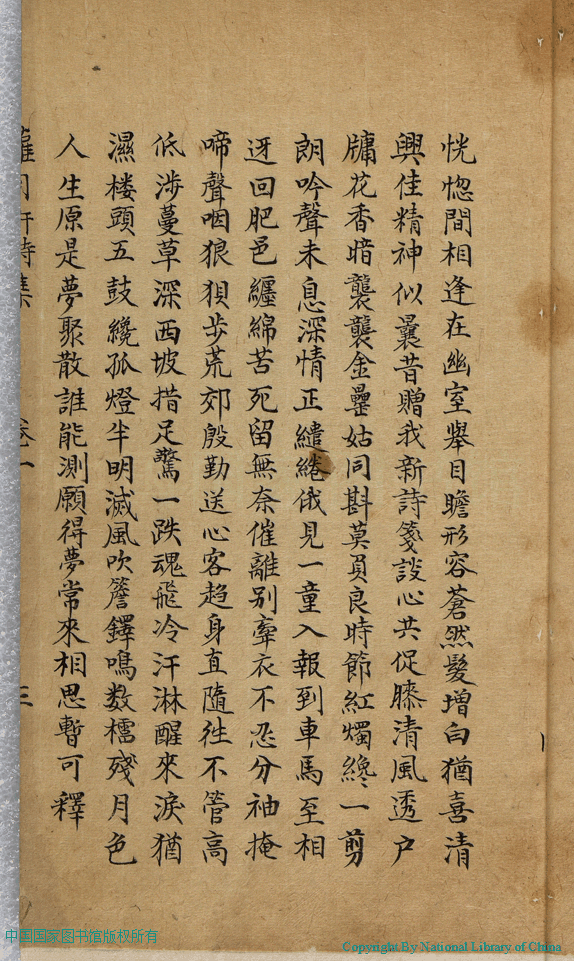 恍惚間相逢在幽室舉目瞻形容蒼然髮增白猶喜清
興佳精神似曩昔贈我新詩箋談心共促膝清風透户
牗花香暗襲襲金罍姑同斟莫負良時節紅燭纔一剪
朗吟聲未息深情正繾綣俄見一童入報到車馬至相
迓回肥邑纏綿苦死留無奈催離别牽衣不忍分袖掩
啼聲咽狼狽步荒郊殷勤送心客趋身直隨徃不管高
低涉蔓草深西坡措足驚一跌魂飛冷汗淋醒來淚猶
濕楼頭五鼓纔孤燈半明滅風吹簷鐸鳴数檽殘月色
人生原是夢聚散誰能測願得夢常來相思暫可釋
詩集 卷一 三
中国国家图书馆版权所有
Copyright By National Library of China